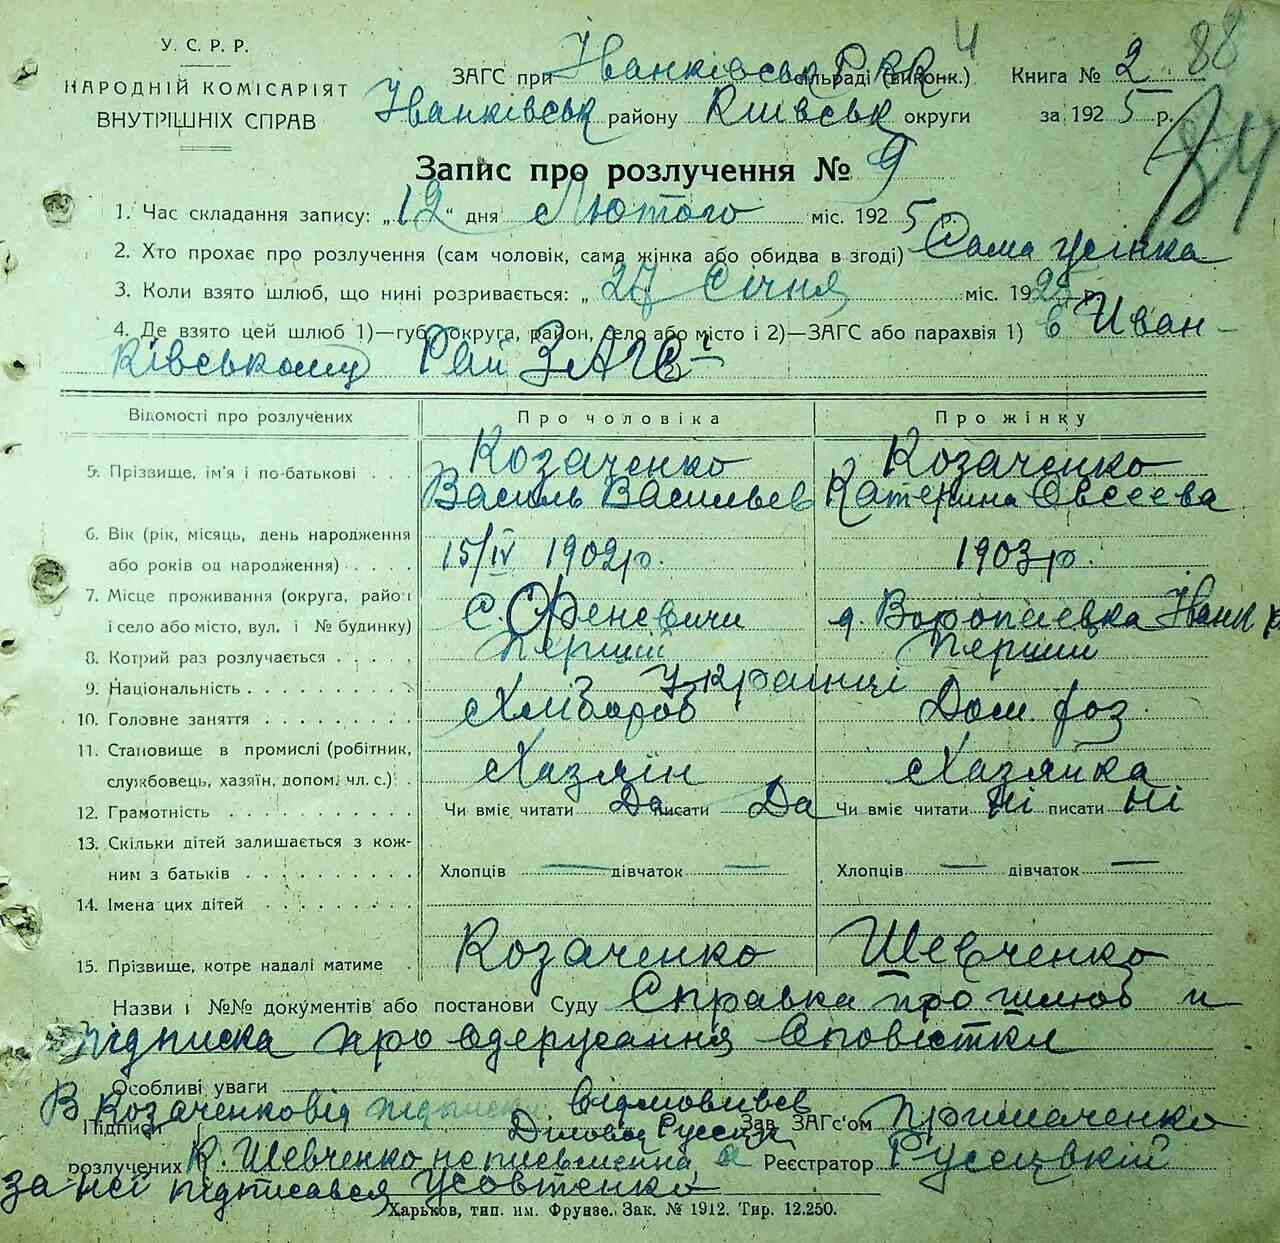 У. С. Р. Р.
НАРОДНІЙ КОМІСАРІЯТ
ВНУТРІШНІХ СПРАВ
88
84
4
ЗАГС при Іванківськ РВК сільраді (виконк.) Книга № 2
Іванківськ району Київськ округи за 1925 р.
Запис про розлучення № 9
1. Час складання запису: „12“ дня Лютого міс. 1925 р.
2. Хто прохає про розлучення (сам чоловік, сама жінка або обидва в згоді) Сама жінка
3. Коли взято шлюб, що нині розривається: „27 Січня міс. 1925 р.
4. Де взято цей шлюб 1)—губ., округа, район, село або місто і 2)—ЗАГС або парахвія 1) в Иван-
ківському Рай ЗАГСі
Відомості про розлучених Про чоловіка Про жінку
5. Прізвище, ім'я і по-батькові Козаченко Василь Васильев Козаченко Катерина Овсеева
6. Вік (рік, місяць, день народження
або років од народження) 15/IV 1902 р. 1903 р.
7. Місце проживання (округа, район
і село або місто, вул. і № будинку) С. Феневичи д. Воропаевка Іванк р
8. Котрий раз розлучається Перший Перший
9. Національність Українці
10. Головне заняття Хлібороб Дом. хоз.
11. Становище в промислі (робітник,
службовець, хазяїн, допом. чл. с.) Хазяїн Хазяйка
12. Грамотність Чи вміє читати Да писати Да Чи вміє читати Ні писати Ні
13. Скільки дітей залишається з кож-
ним з батьків Хлопців — дівчаток — Хлопців — дівчаток —
14. Імена цих дітей
15. Прізвище, котре надалі матиме Козаченко Шевченко
Назви і №№ документів або постанови Суду Справка про шлюб и
підписка про одержання оповістки
Особливі уваги
В Козаченко від підписи відмовився
Підписи Діловод Зав. ЗАГС'ом Примаченко
розлучених К. Шевченко не письменна, а Реєстратор Русецкий
за неї підписався
Харьков, тип. им. Фрунзе. Зак. № 1912. Тир. 12.250.